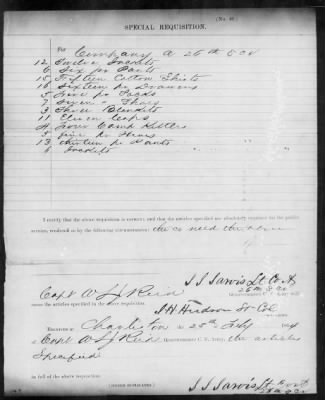 (No. 40.)
SPECIAL REQUISITION.
For Company A 26th S C V
12 Twelve Jackets
6 Six pr Pants
15 Fifteen Cotton Shirts
16 Sixteen pr Drawers
5 Five pr Socks
7 Seven " Shoes
3 Three Blankets
11 Eleven Caps
4 Four Camp Kettles
5 five pr
13 thirteen pr Pants
6 Jackets
I certify that the above requisition is correct; and that the articles specified are absolutely requisite for the public
service, rendered so by the following circumstances: the co need the above
J. J. Jarvis Lt Co A
26th S C V
Capt W J J Reid Quartermaster C. S. Army, will
issue the articles specified in the above requisition.
J H Hudson Lt Col
Received at Charleston the 25th Feby
of Capt W J J Reid Quartermaster C. S. Army, the articles
Specified
in full of the above requisition.
(SIGNED DUPLICATES.)
J. J. Jarvis Lt